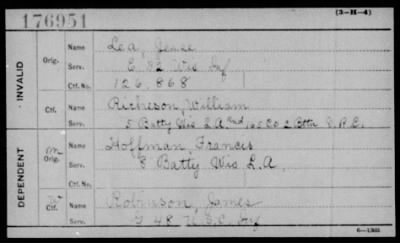 176951
(3-H-4)
INVALID
Orig.
Name Lea, Jesse
Serv. E 32 Wis Inf
Ctf. No. 126,868
Ctf.
Name Richeson, William
Serv. 5 Batty Wis L A and 160 Co 2 Battn V.R.C.
DEPENDENT
Orig.
Name Hoffman, Francis
Serv. 8 Batty Wis L.A.
Ctf. No.
Ctf.
Name Robinson, James
Serv. G 48 U.S.C. Inf
6-1303